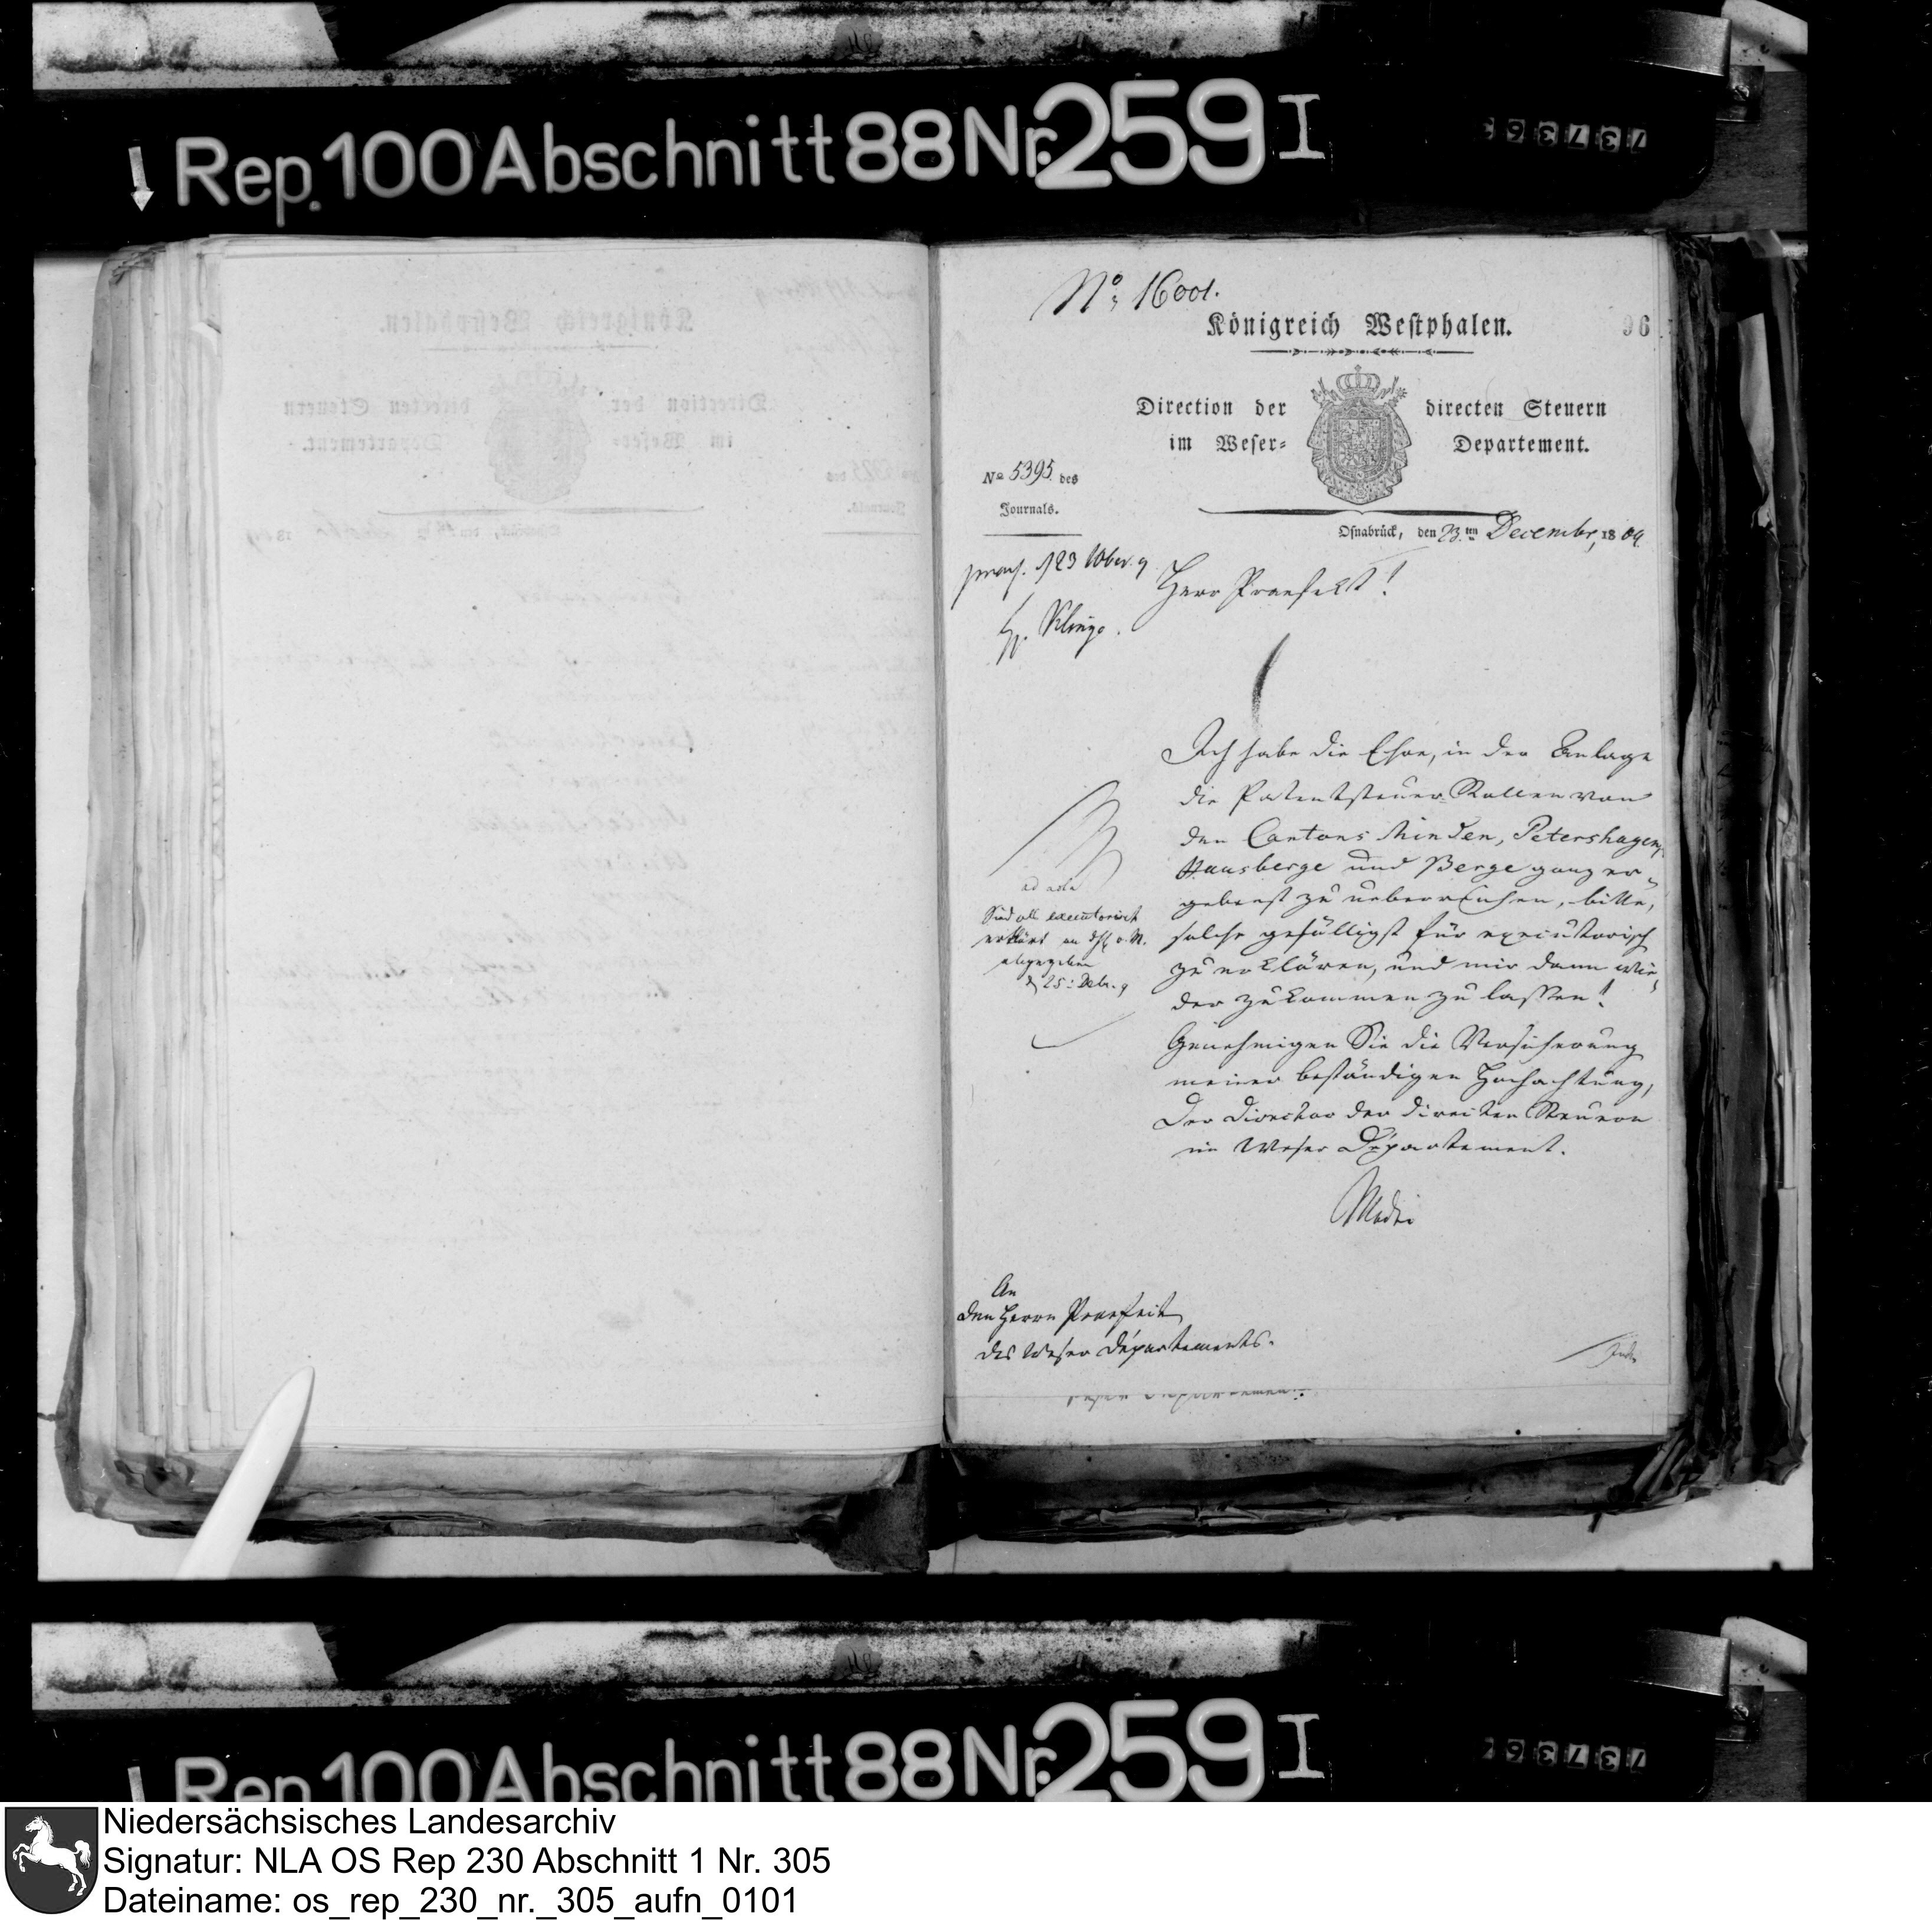 Rep. 100 Abschnitt 88 Nr. 259 I
No. 16001.
Königreich Westphalen.
96
Direction der directen Steuern
im Weser- Departement.
No 5395. des
Journals.
Osnabrück, den 23.ten Decembr, 1809.
praes. d 23 Xber. 9
H. Klinge.
Herr Praefekt!
Ich habe die Ehre, in der Anlage
die Patentsteuer-Rollen von
den Cantons Minden, Petershagen,
Hausberge und Berge ganz er-
gebenst zu ueberreichen, bitte,
solche gefälligst für executorisch
zu erklären, und mir dann wie-
der zukommen zu lassen!
Genehmigen Sie die Versicherung
meiner beständigen Hochachtung,
Der Director der directen Steuern
im Weser Département.
ad acta
Sind als executorisch
erklärt an
abgegeben
d 25: Debr. 9
An
den Herrn Praefect
des Weser Départements.
Rep. 100 Abschnitt 88 Nr. 259 I
Niedersächsisches Landesarchiv
Signatur: NLA OS Rep 230 Abschnitt 1 Nr. 305
Dateiname: os_rep_230_nr._305_aufn_0101